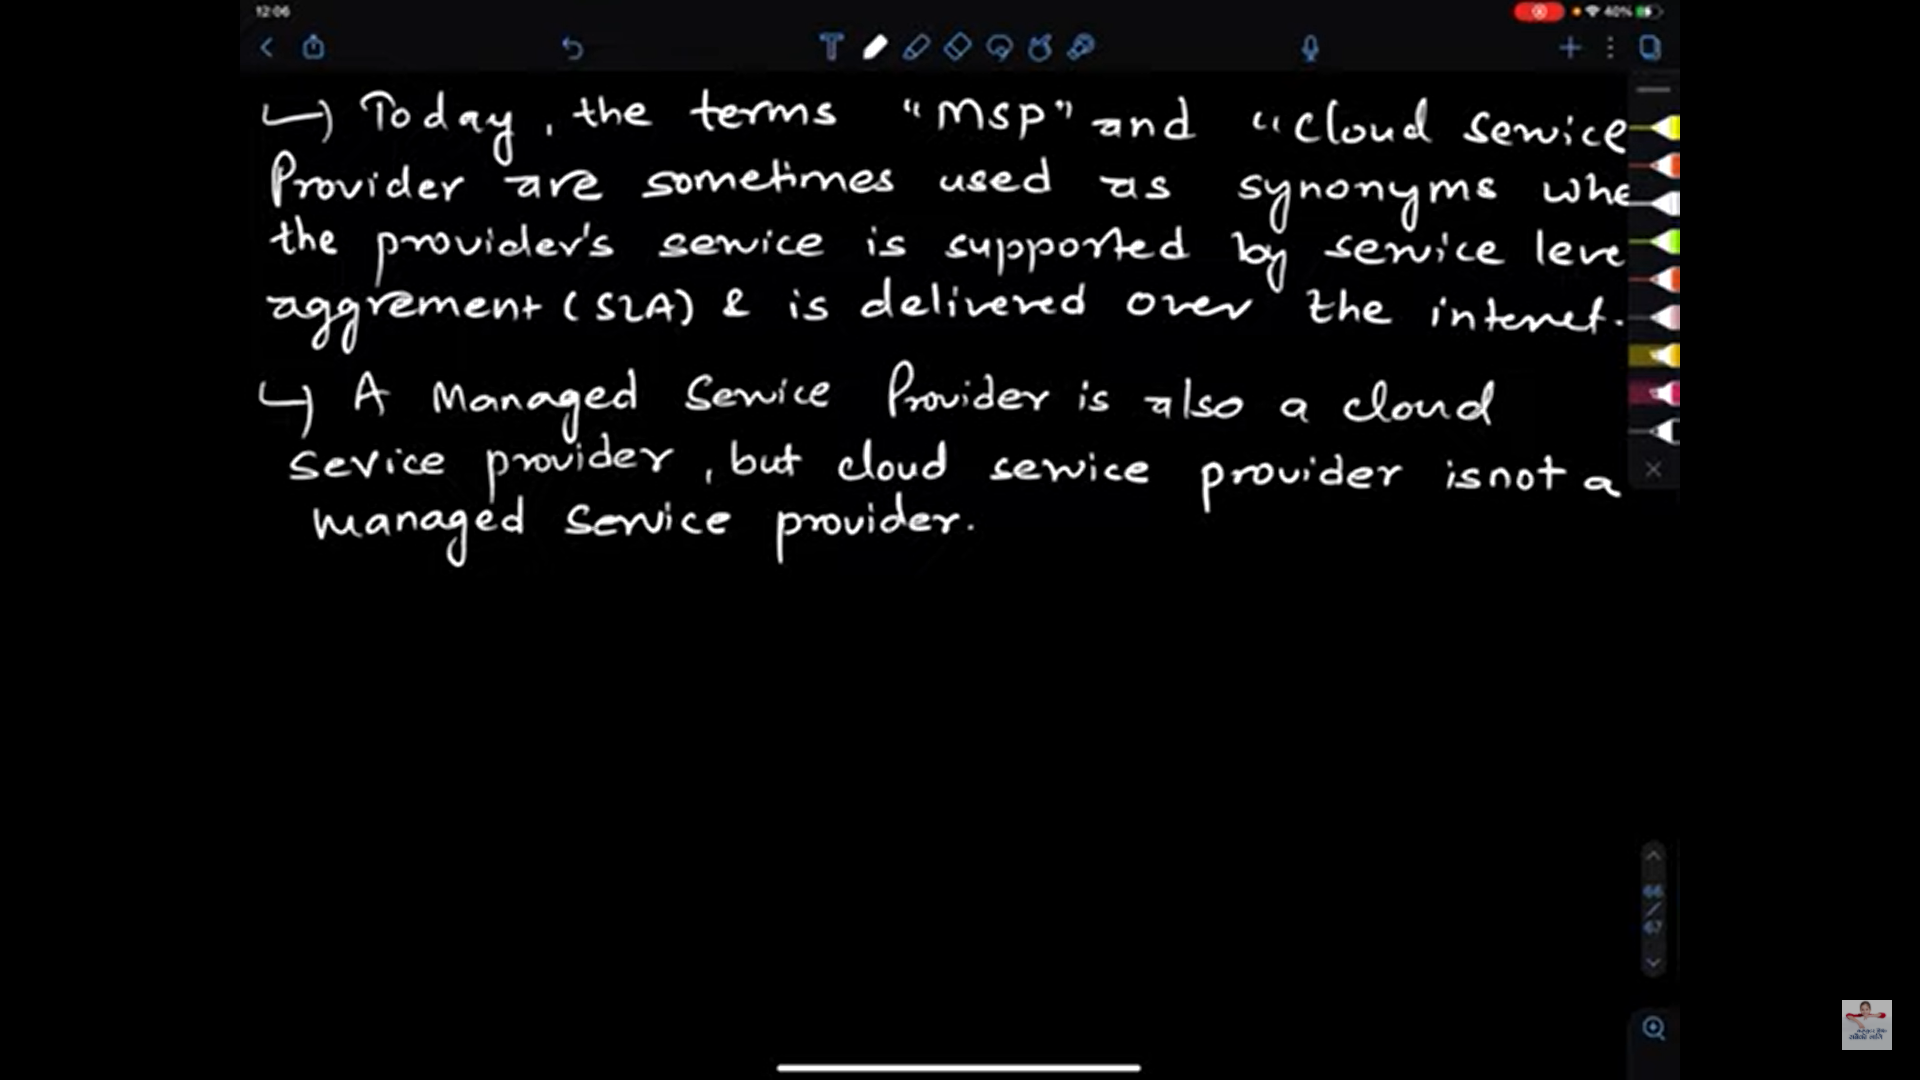 12:06
40%
↳ Today, the terms "MSP" and "Cloud Service
Provider are sometimes used as synonyms whe
the provider's service is supported by service leve
aggrement (SLA) & is delivered over the internet.
↳ A Managed Service Provider is also a cloud
sevice provider, but cloud service provider is not a
managed service provider.
66
/
67